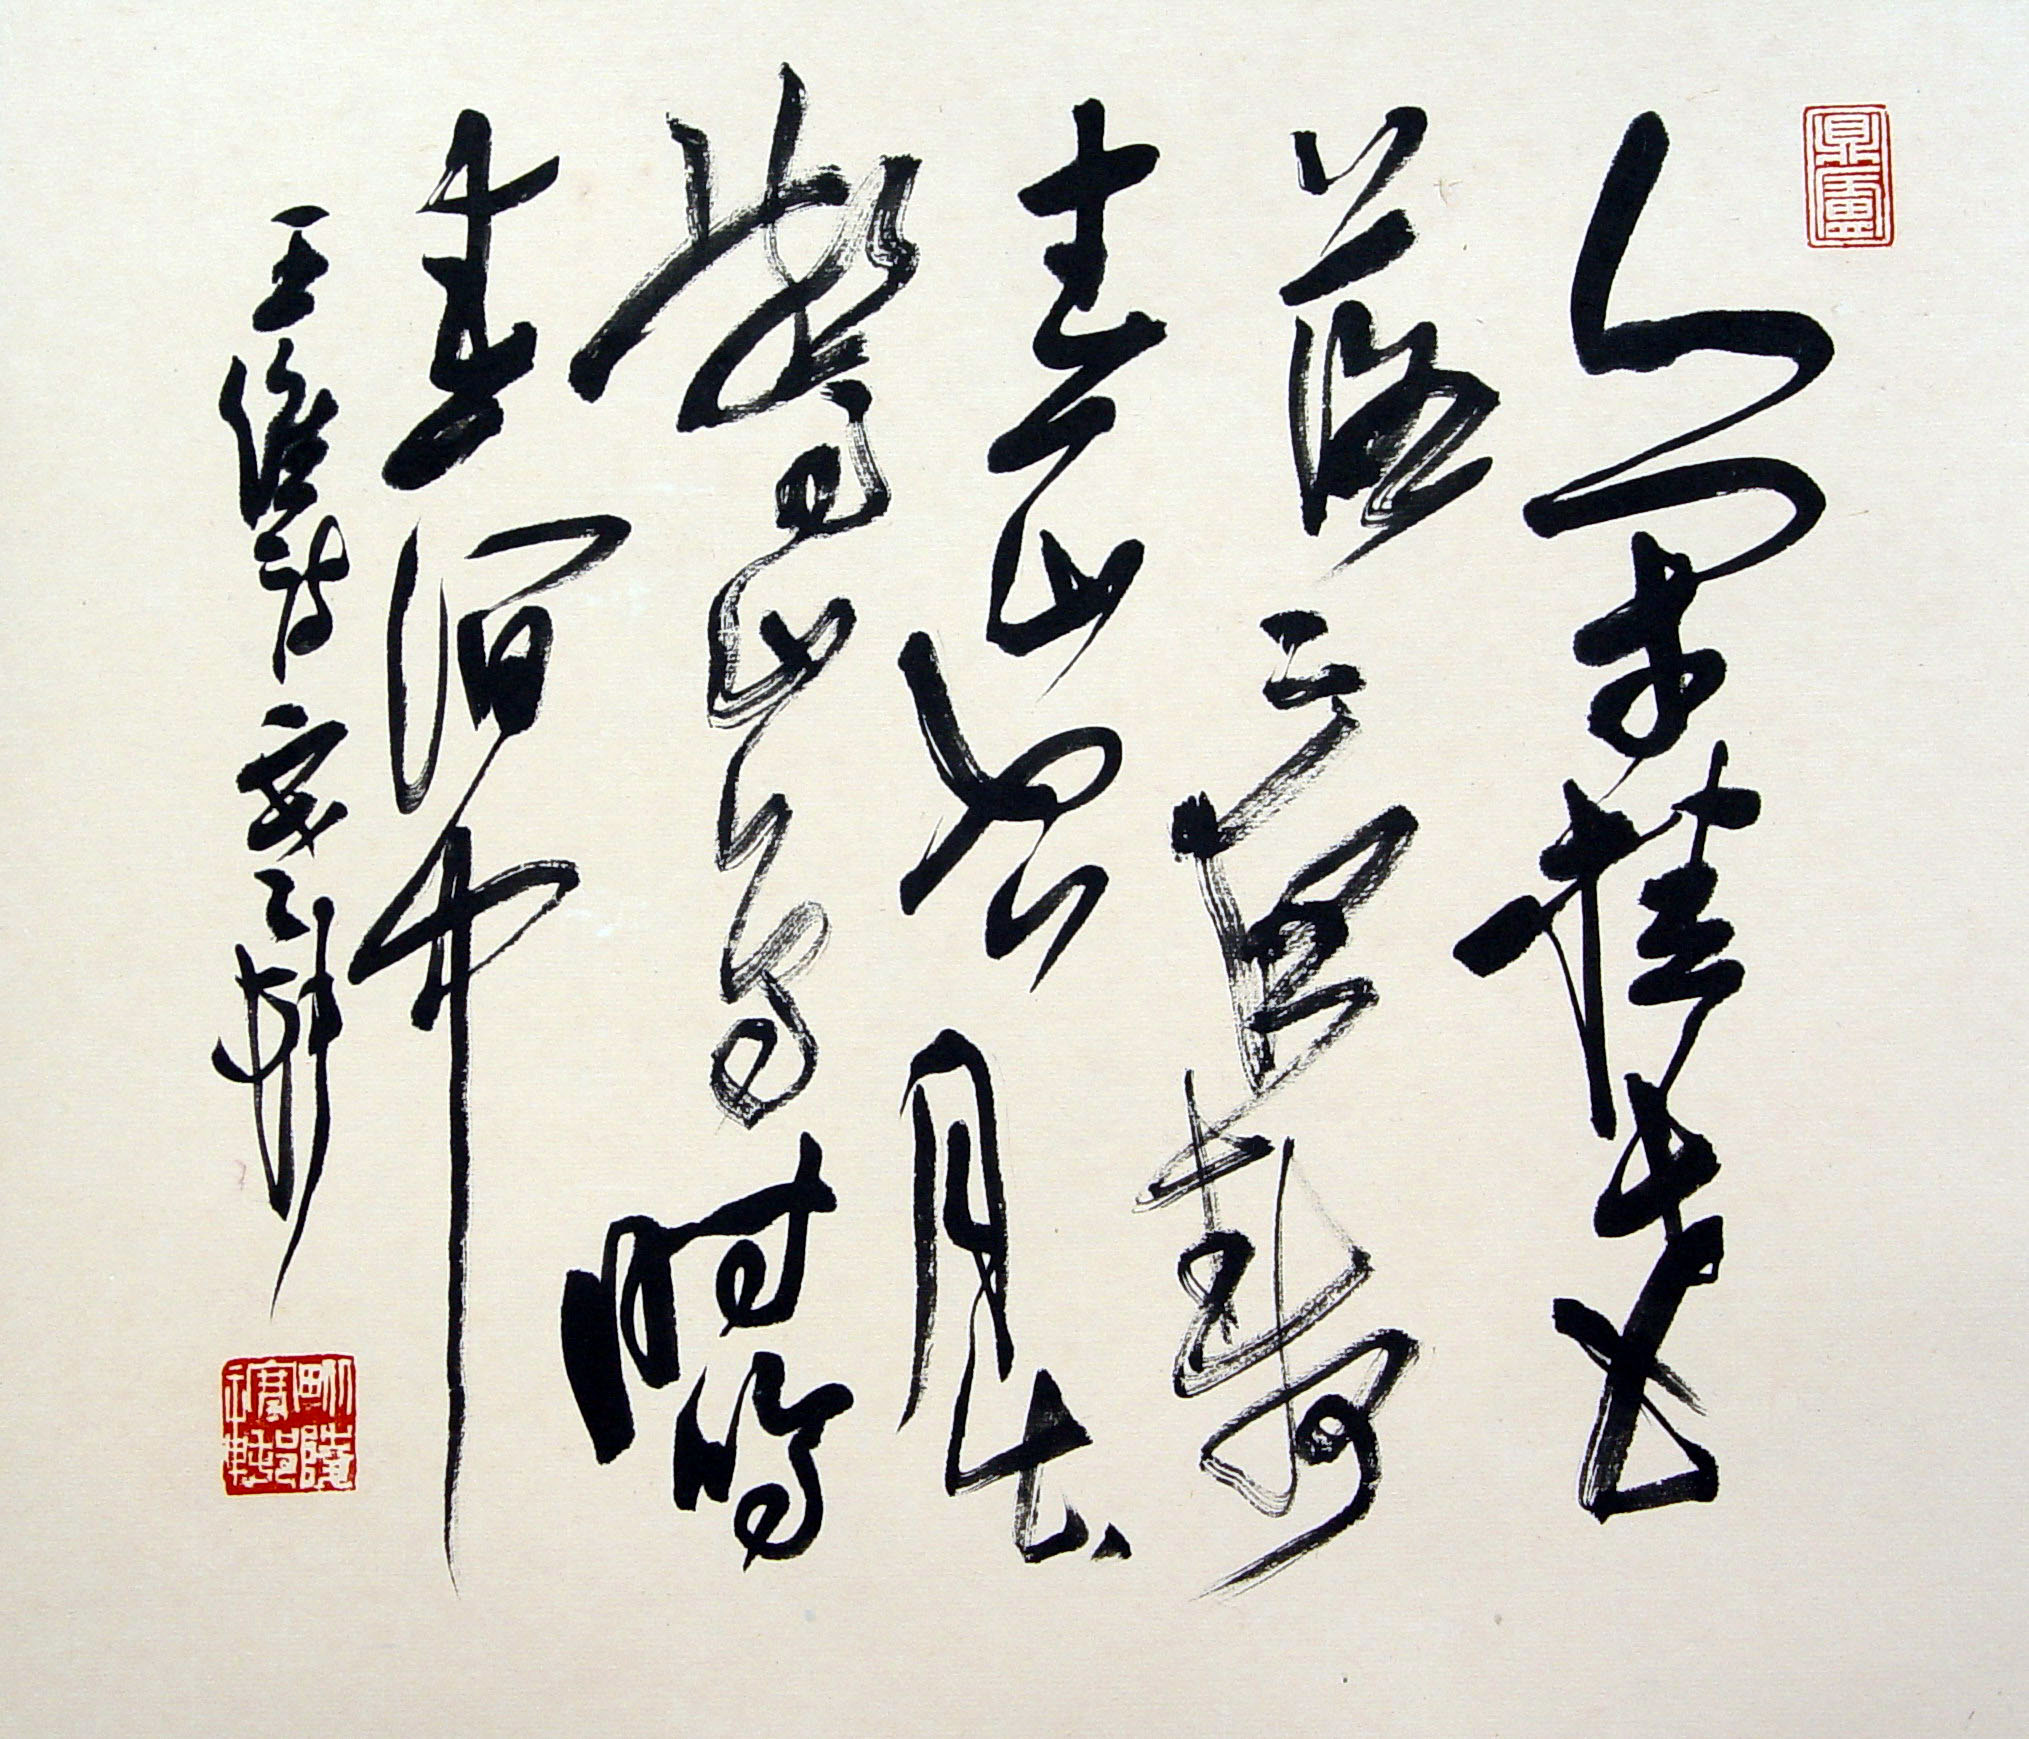 人閑桂花
落夜靜
春山空月出
驚山鳥時鳴
春澗中
王維詩